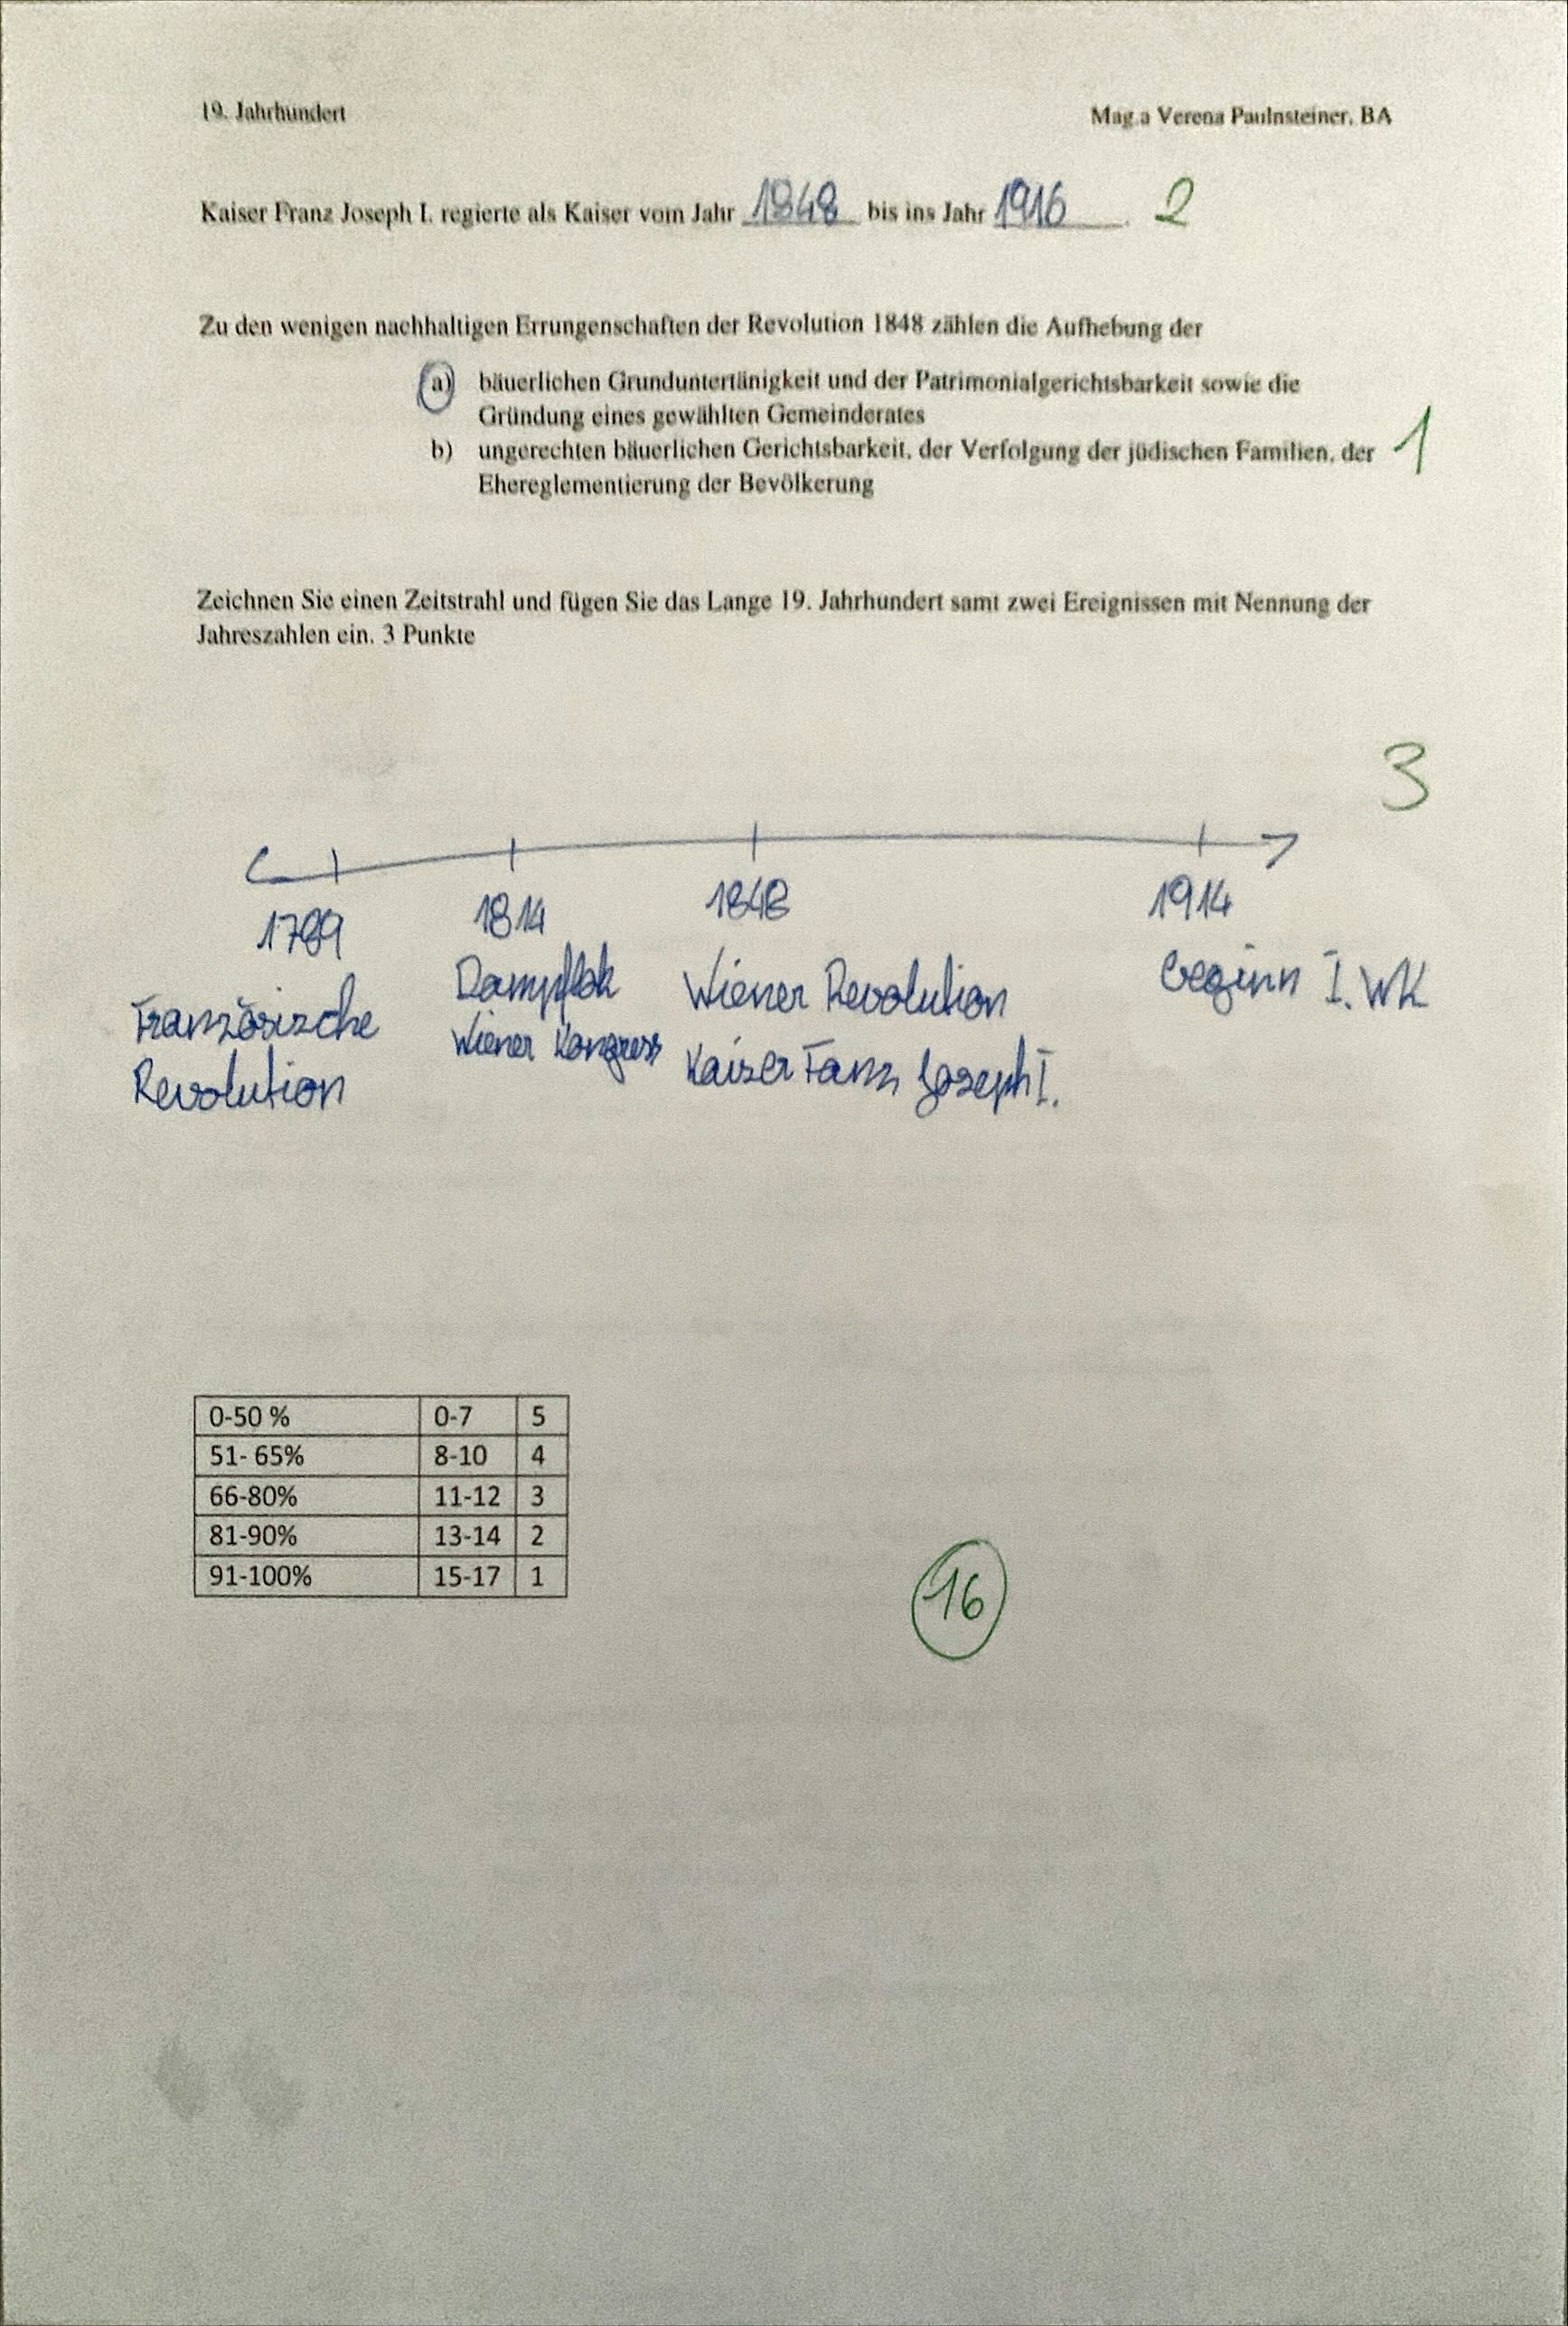 19. Jahrhundert
Mag.a Verena Paulnsteiner, BA
Kaiser Franz Joseph I. regierte als Kaiser vom Jahr 1848 bis ins Jahr 1916. 2
Zu den wenigen nachhaltigen Errungenschaften der Revolution 1848 zählen die Aufhebung der
a) bäuerlichen Grunduntertänigkeit und der Patrimonialgerichtsbarkeit sowie die
Gründung eines gewählten Gemeinderates
b) ungerechten bäuerlichen Gerichtsbarkeit, der Verfolgung der jüdischen Familien, der
1
Ehereglementierung der Bevölkerung
Zeichnen Sie einen Zeitstrahl und fügen Sie das Lange 19. Jahrhundert samt zwei Ereignissen mit Nennung der
Jahreszahlen ein. 3 Punkte
3
1789
Französische
Revolution
1814
Dampflok
Wiener Kongress
1848
Wiener Revolution
Kaiser Fanz Joseph I.
1914
Beginn I. WK
0-50 % 0-7 5
51- 65% 8-10 4
66-80% 11-12 3
81-90% 13-14 2
91-100% 15-17 1
16